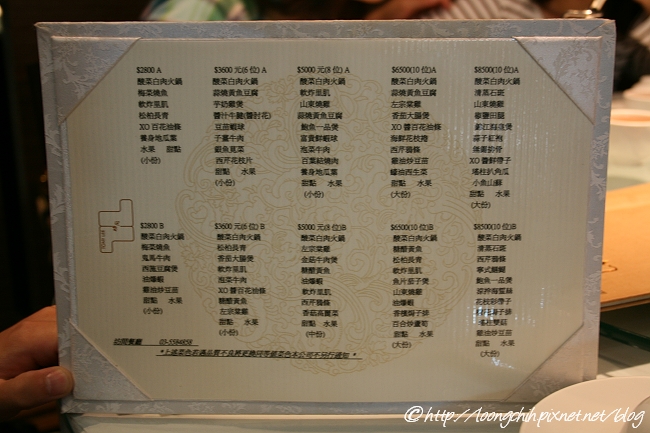 $2800 A
酸菜白肉火鍋
梅菜燒魚
軟炸里肌
松柏長青
XO 百花油條
養身地瓜葉
水果 甜點
(小份)
$3600 元(6 位) A
酸菜白肉火鍋
蒜燒黃魚豆腐
芋奶雞煲
醬汁牛腱(醬肘花)
豆苗蝦球
子薑牛肉
銀魚莧菜
西芹花枝片
甜點 水果
(小份)
$5000 元(8 位) A
酸菜白肉火鍋
軟炸里肌
山東燒雞
蒜燒黃魚豆腐
鮑魚一品煲
富貴鮮蝦球
泡菜牛肉
百葉結燒肉
養身地瓜葉
甜點 水果
(小份)
$6500(10 位)A
酸菜白肉火鍋
蒜燒黃魚豆腐
左宗棠雞
香茄大腸煲
XO 百花油條
海鮮花枝捲
泡菜牛肉
西芹鴉條
雞油炒豆苗
蠔油西生菜
甜點 水果
(大份)
$8500(10 位)A
酸菜白肉火鍋
清蒸石斑
山東燒雞
蒜子紅袍
XO 醬鮮帶子
瑤柱扒角瓜
小魚山蘇
甜點 水果
(大份)
$2800 B
酸菜白肉火鍋
梅菜燒魚
鬼馬牛肉
西施豆腐煲
油爆蝦
雞油炒豆苗
甜點 水果
(小份)
$3600 元(6 位) B
酸菜白肉火鍋
松柏長青
香茄大腸煲
軟炸里肌
泡菜牛肉
XO 醬百花油條
糖醋黃魚
左宗棠雞
甜點 水果
(小份)
$5000 元(8 位)B
酸菜白肉火鍋
左宗棠雞
金菇牛肉煲
糖醋黃魚
油爆蝦
軟炸里肌
松柏長青
西芹鴉條
香菇高麗菜
甜點 水果
(中份)
$6500 元(10 位)B
酸菜白肉火鍋
松柏長青
糖醋黃魚
軟炸里肌
魚片茄子煲
山東燒雞
油爆蝦
香檳焗子排
百合炒蘆筍
甜點 水果
(大份)
$8500(10 位)B
酸菜白肉火鍋
清蒸石斑
寧式鱔糊
鮑魚一品煲
花枝鮮帶子
瑤柱雙菇
雞油炒豆苗
甜點 水果
(大份)
03-5584658
*上述菜色若遇品質不良將更換同等級菜色本公司不另行通知 *
©http://loongchih.pixnet.net/blog